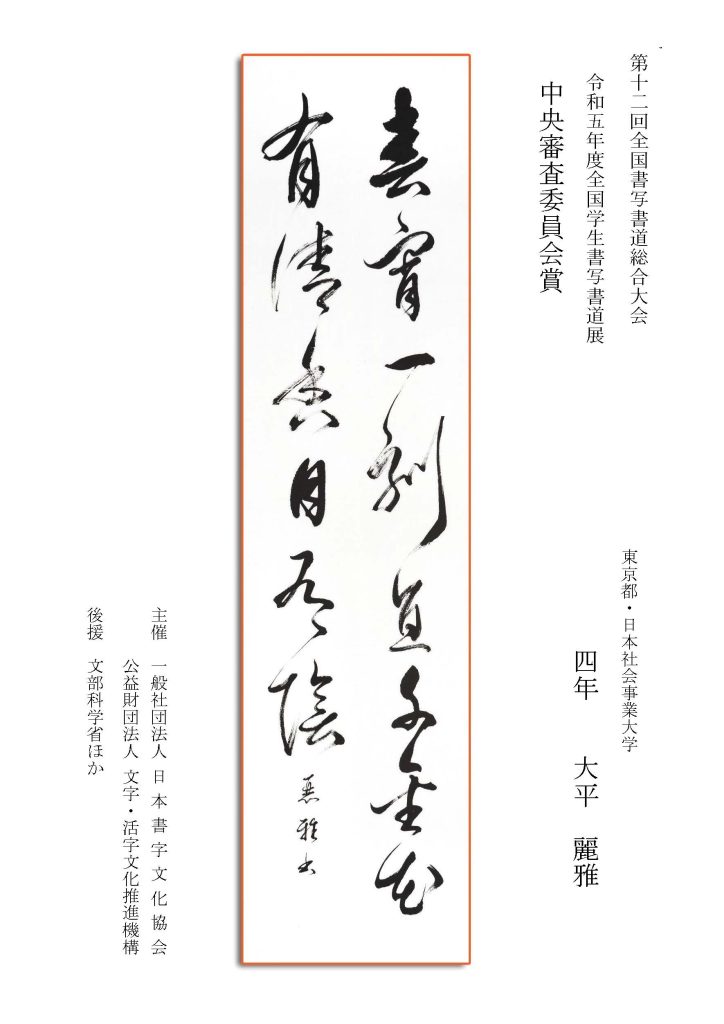 第十二回全国書写書道総合大会
令和五年度全国学生書写書道展
中央審査委員会賞
東京都・日本社会事業大学
四年 大平 麗雅
春宵一刻直千金花
有清香月有陰
麗雅書
主催 一般社団法人 日本書字文化協会
公益財団法人 文字・活字文化推進機構
後援 文部科学省ほか